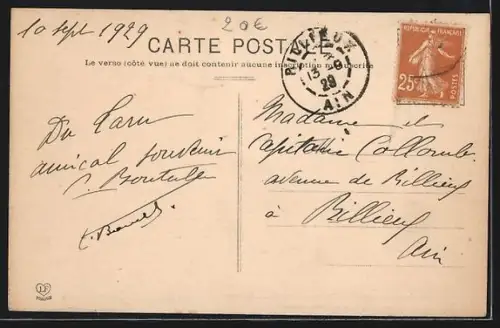 10 sept 1929
20€
CARTE POSTALE
Le verso (côté vue) ne doit contenir aucune inscription manuscrite
RILLIEUX
13
29
AIN
REPUBLIQUE FRANÇAISE
25c
POSTES
Du Tarn
amical souvenir
Madame et
Capitaine Collomb
avenue de Rillieux
à Rillieux
Ain